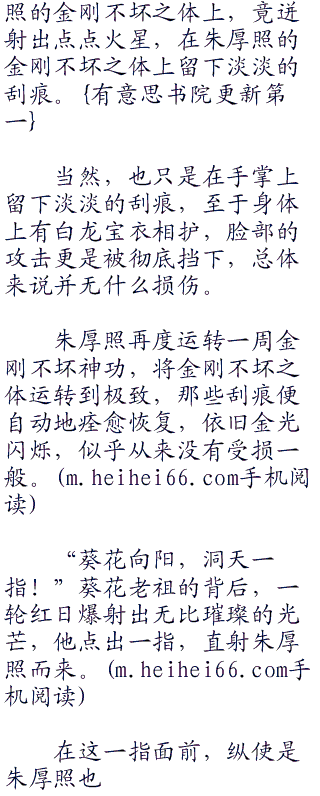 照的金刚不坏之体上，竟迸
射出点点火星，在朱厚照的
金刚不坏之体上留下淡淡的
刮痕。{有意思书院更新第
一}
当然，也只是在手掌上
留下淡淡的刮痕，至于身体
上有白龙宝衣相护，脸部的
攻击更是被彻底挡下，总体
来说并无什么损伤。
朱厚照再度运转一周金
刚不坏神功，将金刚不坏之
体运转到极致，那些刮痕便
自动地痊愈恢复，依旧金光
闪烁，似乎从来没有受损一
般。(m.heihei66.com手机阅
读)
“葵花向阳，洞天一
指！”葵花老祖的背后，一
轮红日爆射出无比璀璨的光
芒，他点出一指，直射朱厚
照而来。(m.heihei66.com手
机阅读)
在这一指面前，纵使是
朱厚照也